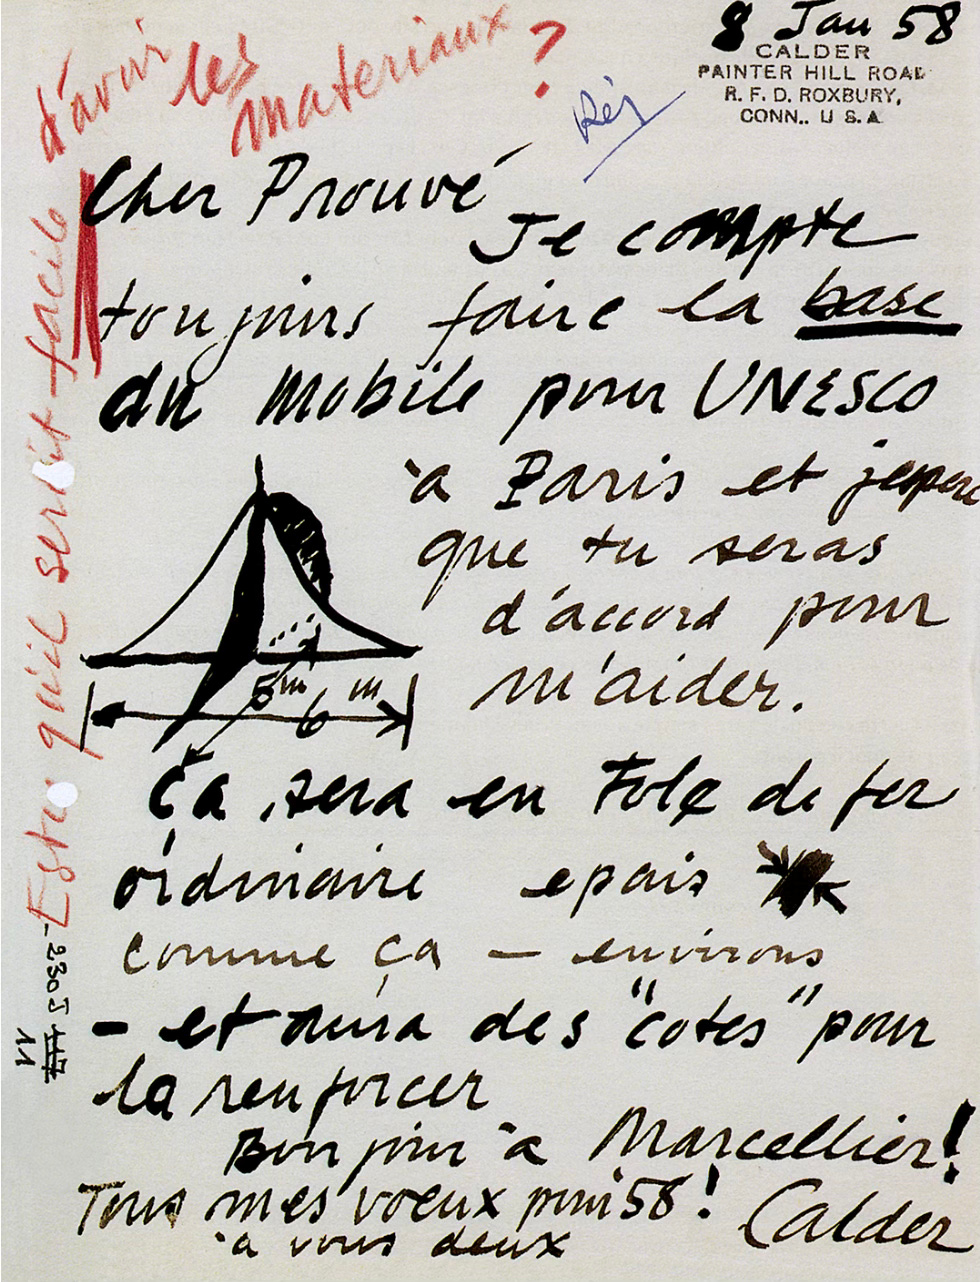 8 Jan 58
CALDER
PAINTER HILL ROAD
R. F. D. ROXBURY,
CONN.. U S.A
Cher Prouvé
Je compte
toujours faire la base
du Mobile pour UNESCO
à Paris et jespere
que tu seras
d'accord pour
m'aider.
5m
6m
Ça sera en Tole de fer
ordinaire epais
comme ça – environs
– et aura des "cotes" pour
la renforcer
Bonjour à Marcellier!
Tous mes voeux pour 58!
à vous deux
Calder
Est ce qu'il serait facile
d'avoir les
materiaux ?
Rép
2305
117
11